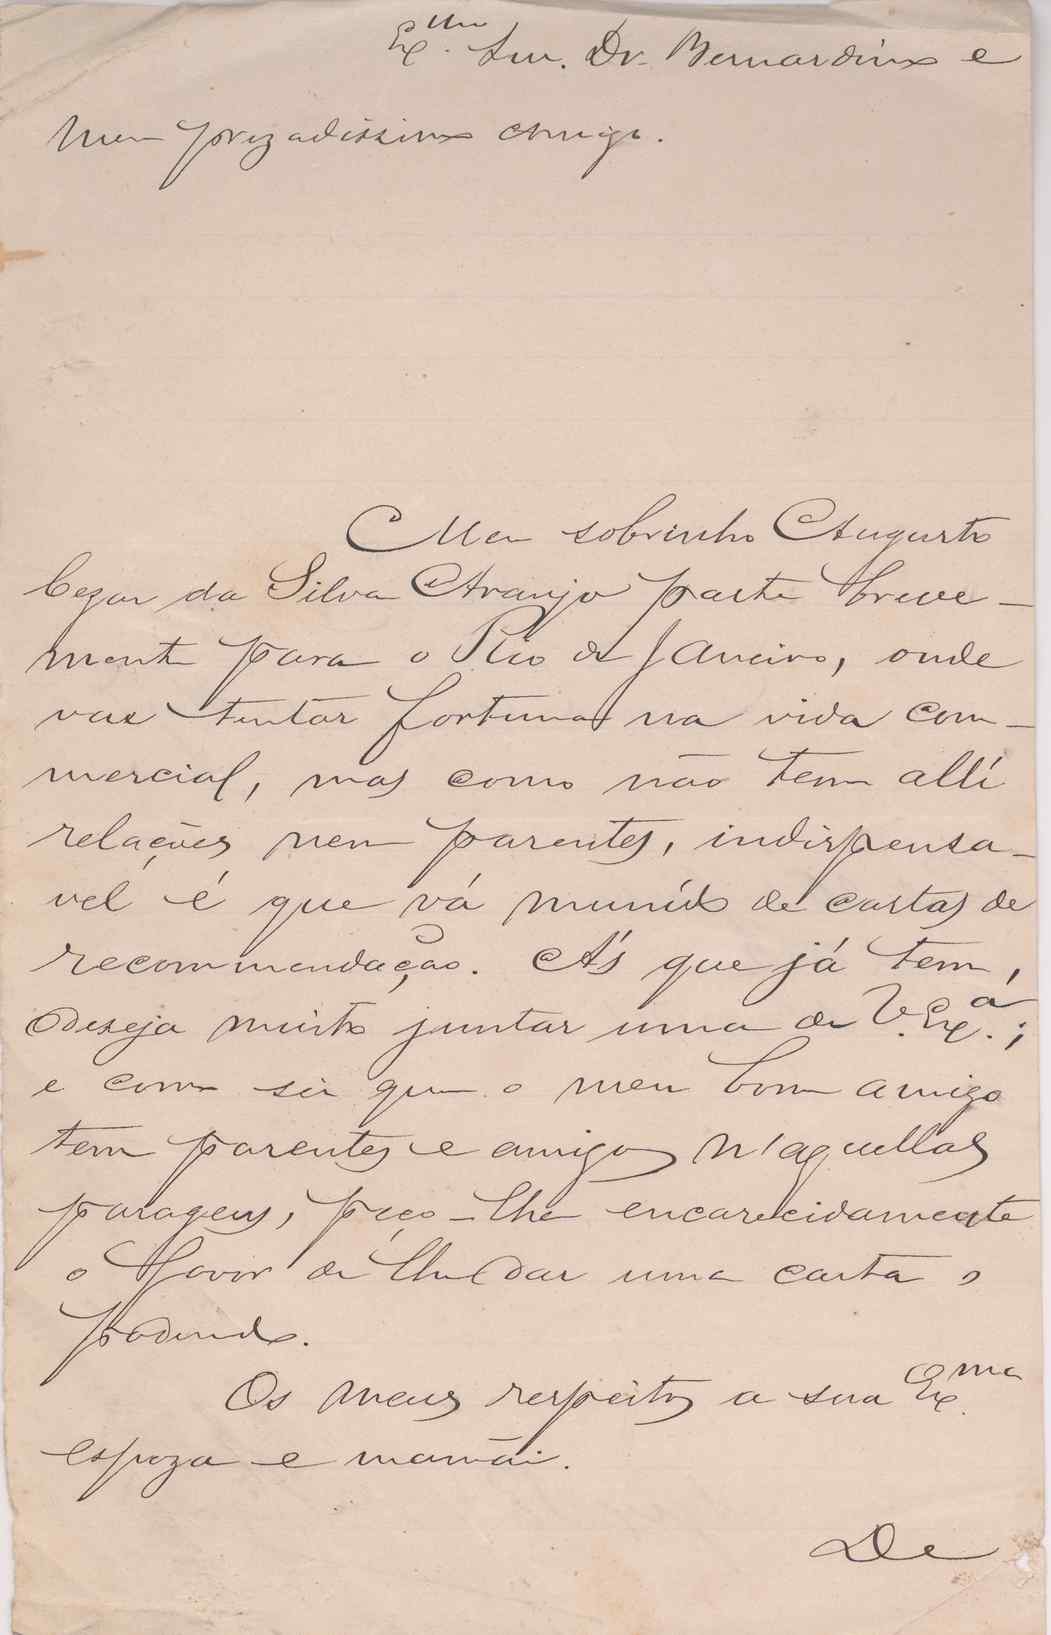 Ex.mo Snr. Dr. Bernardino e
Meu prezadissimo amigo.
Meu sobrinho Augusto
Cezar da Silva Araujo parte breve-
mente para o Rio de Janeiro, onde
vae tentar fortuna na vida com-
mercial, mas como não tem allí
relações nem parentes, indispensa-
vel é que vá munído de cartas de
recommendação. Ás que já tem,
deseja muito juntar uma de V. Ex.ª;
e como sei que o meu bom amigo
tem parentes e amigos n'aquellas
paragens, peço-lhe encarecidamente
o favor de lhe dar uma carta
podendo.
Os meus respeitos a sua Ex.ma
espoza e mamãi.
De